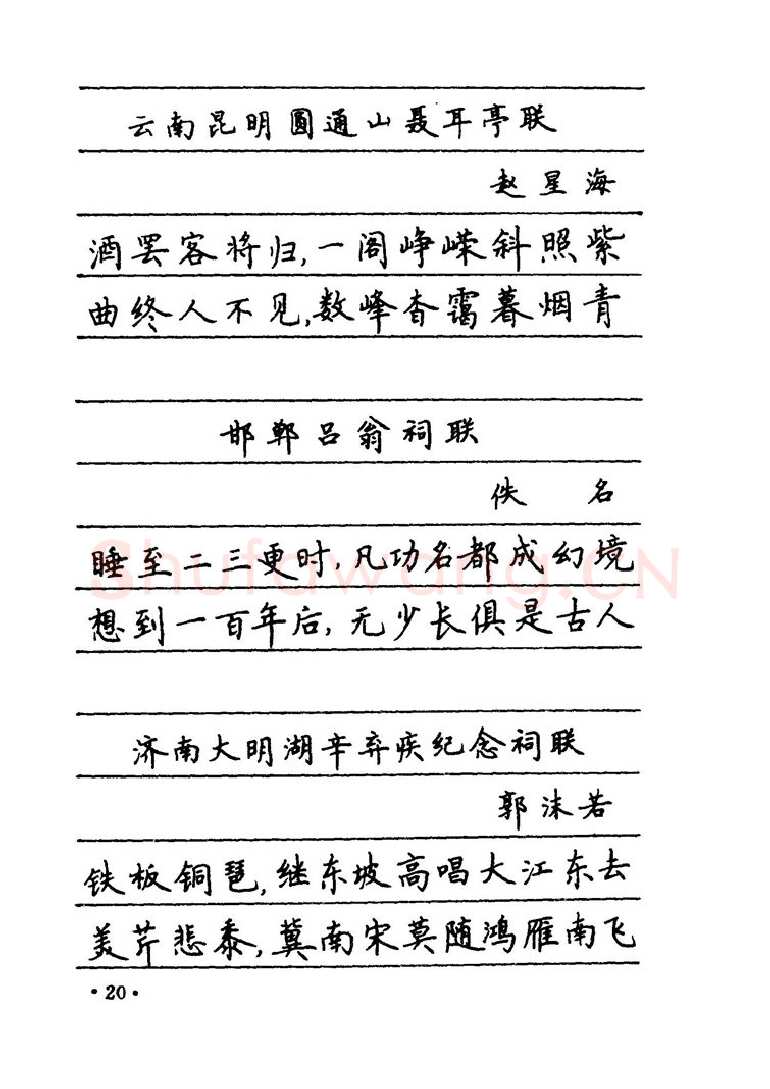 云南昆明圆通山聂耳亭联
赵星海
酒罢客将归,一阁峥嵘斜照紫
曲终人不见,数峰杳霭暮烟青
邯郸吕翁祠联
佚 名
睡至二三更时,凡功名都成幻境
想到一百年后,无少长俱是古人
济南大明湖辛弃疾纪念祠联
郭沫若
铁板铜琶,继东坡高唱大江东去
美芹悲黍,冀南宋莫随鸿雁南飞
·20·
Shufawang.CN